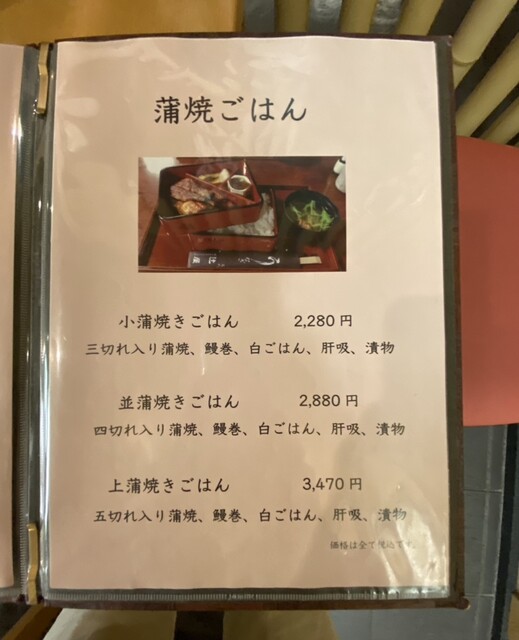 蒲焼ごはん
小蒲焼きごはん 2,280円
三切れ入り蒲焼、鰻巻、白ごはん、肝吸、漬物
並蒲焼きごはん 2,880円
四切れ入り蒲焼、鰻巻、白ごはん、肝吸、漬物
上蒲焼きごはん 3,470円
五切れ入り蒲焼、鰻巻、白ごはん、肝吸、漬物
価格は全て税込です。